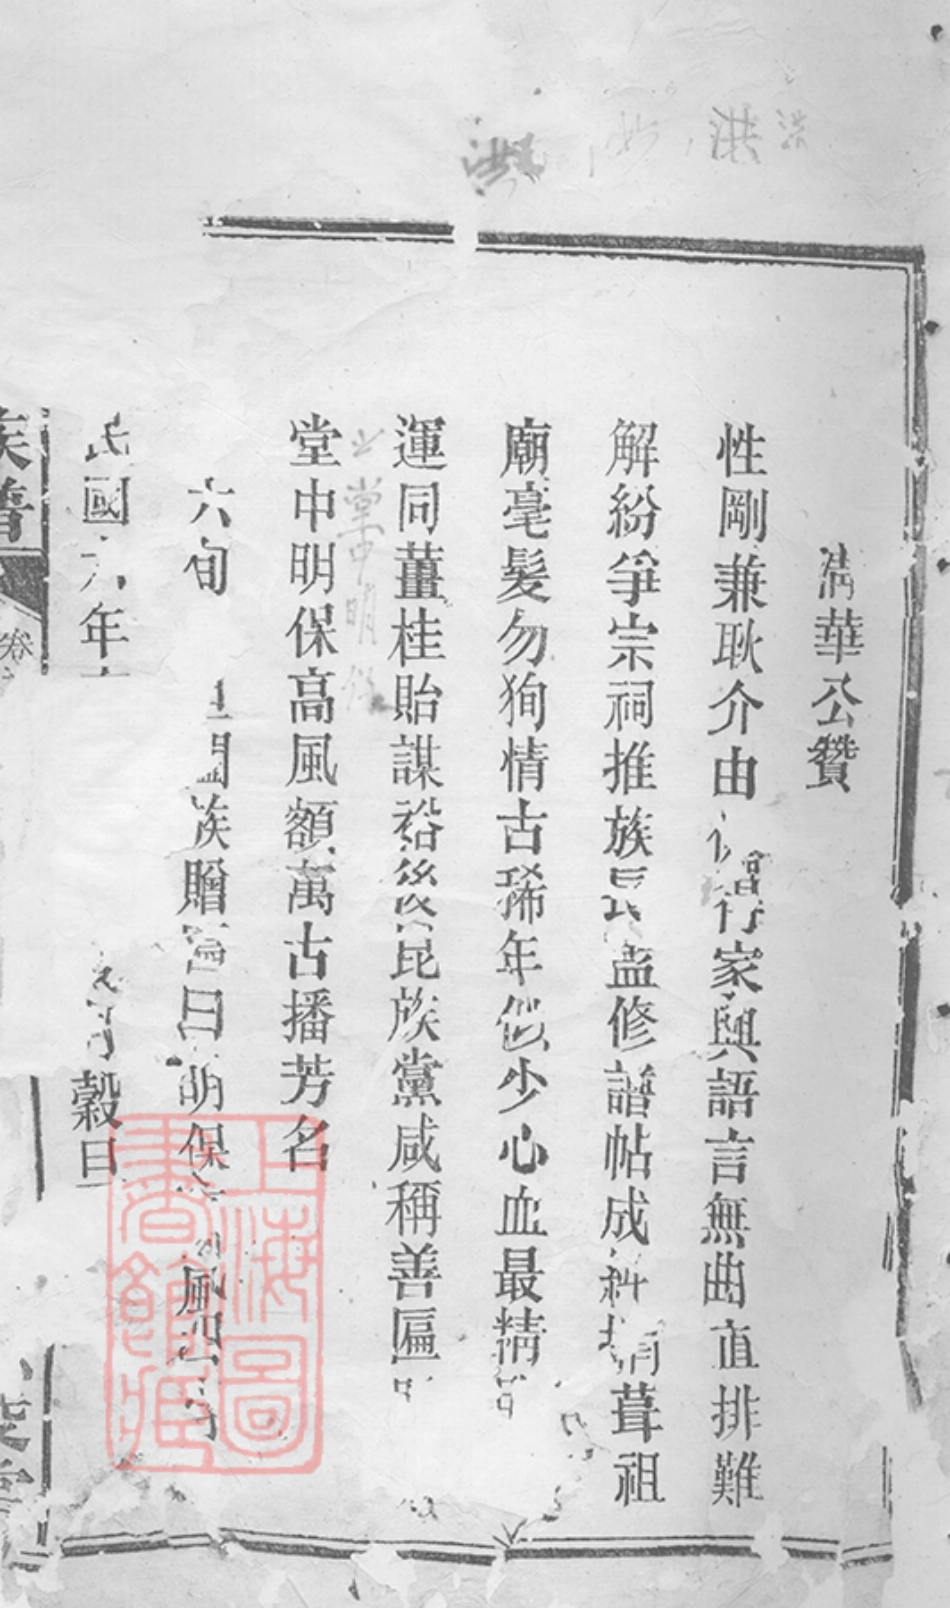 洪 洪
清華公贊
性剛兼耿介由行家與語言無曲直排難
解紛爭宗祠推族長孟修譜帖成葺祖
廟毫髮勿狥情古稀年似少心血最精
運同薑桂貽謀裕後昆族黨咸稱善匾
堂中明保
堂中明保高風額萬古播芳名
六旬闔族贈匾曰明保風
民國六年穀旦
族譜
卷
上海圖書館藏